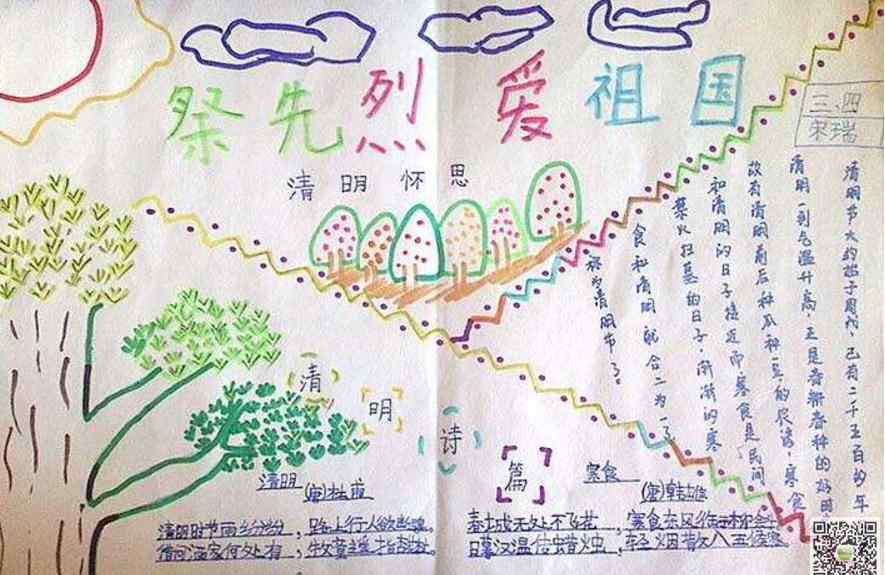 祭先烈 爱祖国
清明怀思
三.四
宋瑞
清明节大约始于周代，已有二千五百的年
清明一到气温升高，正是春耕春种的好时
故有清明前后种瓜种豆的农谚，寒食
和清明的日子接近而寒食是民间
禁火扫墓的日子，渐渐的寒
食和清明就合二为一了
称为清明节了。
清明诗篇
清明
(唐)杜
清明时节雨纷纷，路上行人欲断魂。
借问酒家何处有，牧童遥指杏花村。
寒食
(唐)韩
春城无处不飞花，寒食东风御柳
日暮汉宫传蜡烛，轻烟散入五侯家